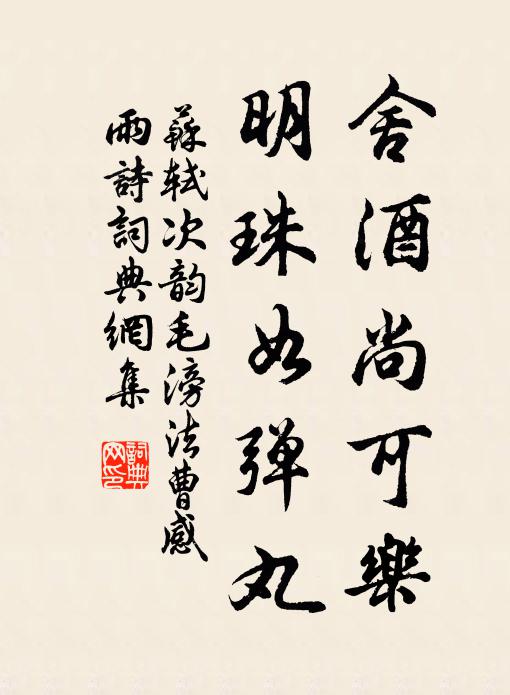 舍酒尚可樂
明珠如弹丸
蘇軾次韵毛滂法曹感
雨詩詞典網集
詞典
网印